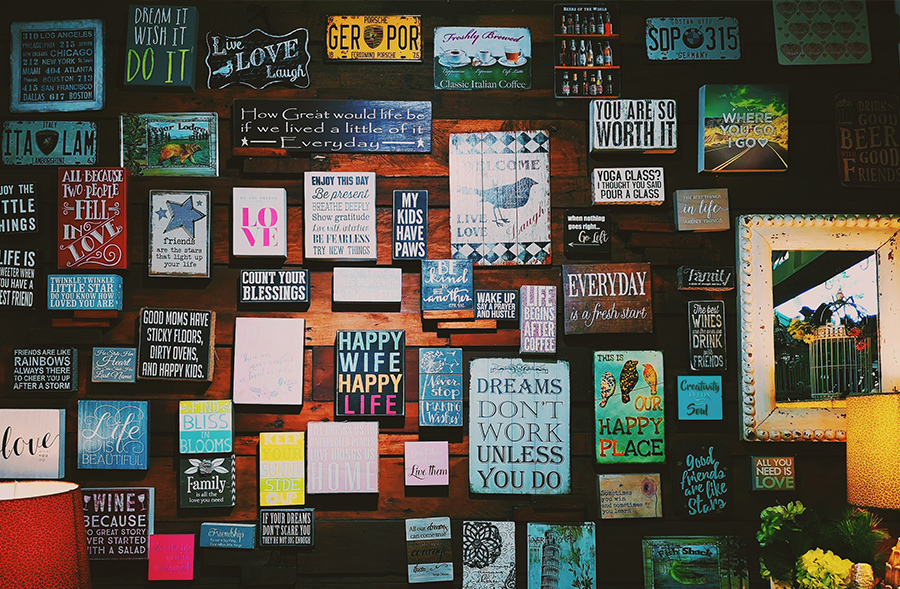 310 LOS ANGELES
PHILADELPHIA 215
CHICAGO
212 NEW YORK
MIAMI 404 ATLANTA
HOUSTON 713
415 SAN FRANCISCO
DALLAS
DREAM IT
WISH IT
DO IT
Live
LOVE
Laugh
PORSCHE
GER POR
FERDINAND PORSCHE
Freshly Brewed
Classic Italian Coffee
BEERS OF THE WORLD
SDP 315
GERMANY
ITALY
ITA LAM
LAMBORGHINI
Bear Lodge
How Great would life be
if we lived a little of it
Everyday
YOU ARE SO
WORTH IT
WHERE
YOU GO
I GO
DRINK
GOOD
BEER
GOOD
FRIENDS
ENJOY THE
LITTLE
THINGS
ALL
BECAUSE
TWO PEOPLE
FELL
IN
LOVE
friends
are the stars
that light up
your life
LOVE
ENJOY THIS DAY
Be present
BREATHE DEEPLY
Show gratitude
BE FEARLESS
TRY NEW THINGS
MY
KIDS
HAVE
PAWS
WELCOME
LIVE
LOVE
Laugh
YOGA CLASS?
I THOUGHT YOU SAID
POUR A CLASS
when nothing
goes right...
Go Left
in life
LIFE IS
SWEETER WHEN
YOU HAVE
A BEST FRIEND
TWINKLE TWINKLE
LITTLE STAR
DO YOU KNOW HOW
LOVED YOU ARE
COUNT YOUR
BLESSINGS
BE
kind
to one
another
WAKE UP
SAY A PRAYER
AND HUSTLE
LIFE
BEGINS
AFTER
COFFEE
EVERYDAY
is a fresh start
Family
The best
WINES
are those we
DRINK
with
FRIENDS
GOOD MOMS HAVE
STICKY FLOORS,
DIRTY OVENS,
AND HAPPY KIDS.
FRIENDS ARE LIKE
RAINBOWS
ALWAYS THERE
TO CHEER YOU UP
AFTER A STORM
Heart
HAPPY
WIFE
HAPPY
LIFE
Never
Stop
MAKING
Wishes
DREAMS
DON'T
WORK
UNLESS
YOU DO
THIS IS
OUR
HAPPY
PLACE
Creativity
Soul
love
Life
is
BEAUTIFUL
BLISS
IN
BLOOMS
Family
is all the
love you need
KEEP
YOUR
SIDE
LOVE BRINGS US
HOME
Live them
Sometimes
you win and
sometimes
you learn
Good
friends
are like
Stars
ALL YOU
NEED IS
LOVE
WINE
BECAUSE
NO GREAT STORY
EVER STARTED
WITH A SALAD
Friendship
IF YOUR DREAMS
DON'T SCARE YOU
THEY'RE NOT BIG ENOUGH
All our dreams
can come true
Fish Shack